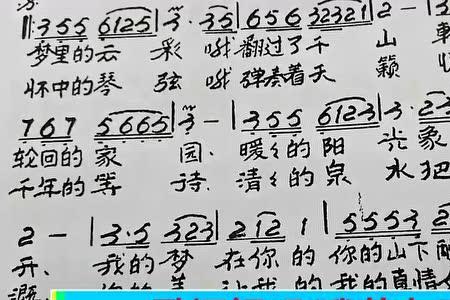 ‖: 3 5 5 6 1 2 5 | 3 · 3 5 | 6 5 6 3 2 3 2 1 | 2 - | 3
梦里的云 彩 哦翻过了千 山
怀中的琴 弦 哦弹奏着天 籁
7 6 7 5 6 6 5 | 3 - | 3 5 5 6 1 2 3 | 3 · 2 3
轮回的家 园. 暖〻的阳 光象
千年的等 待. 清〻的泉 水把
2 - | 3 · 5 3 2 3 | 2 1 2 1 | 5 5 5 3 2
开. 我的梦 在你 的 你的山下
的 我的真情